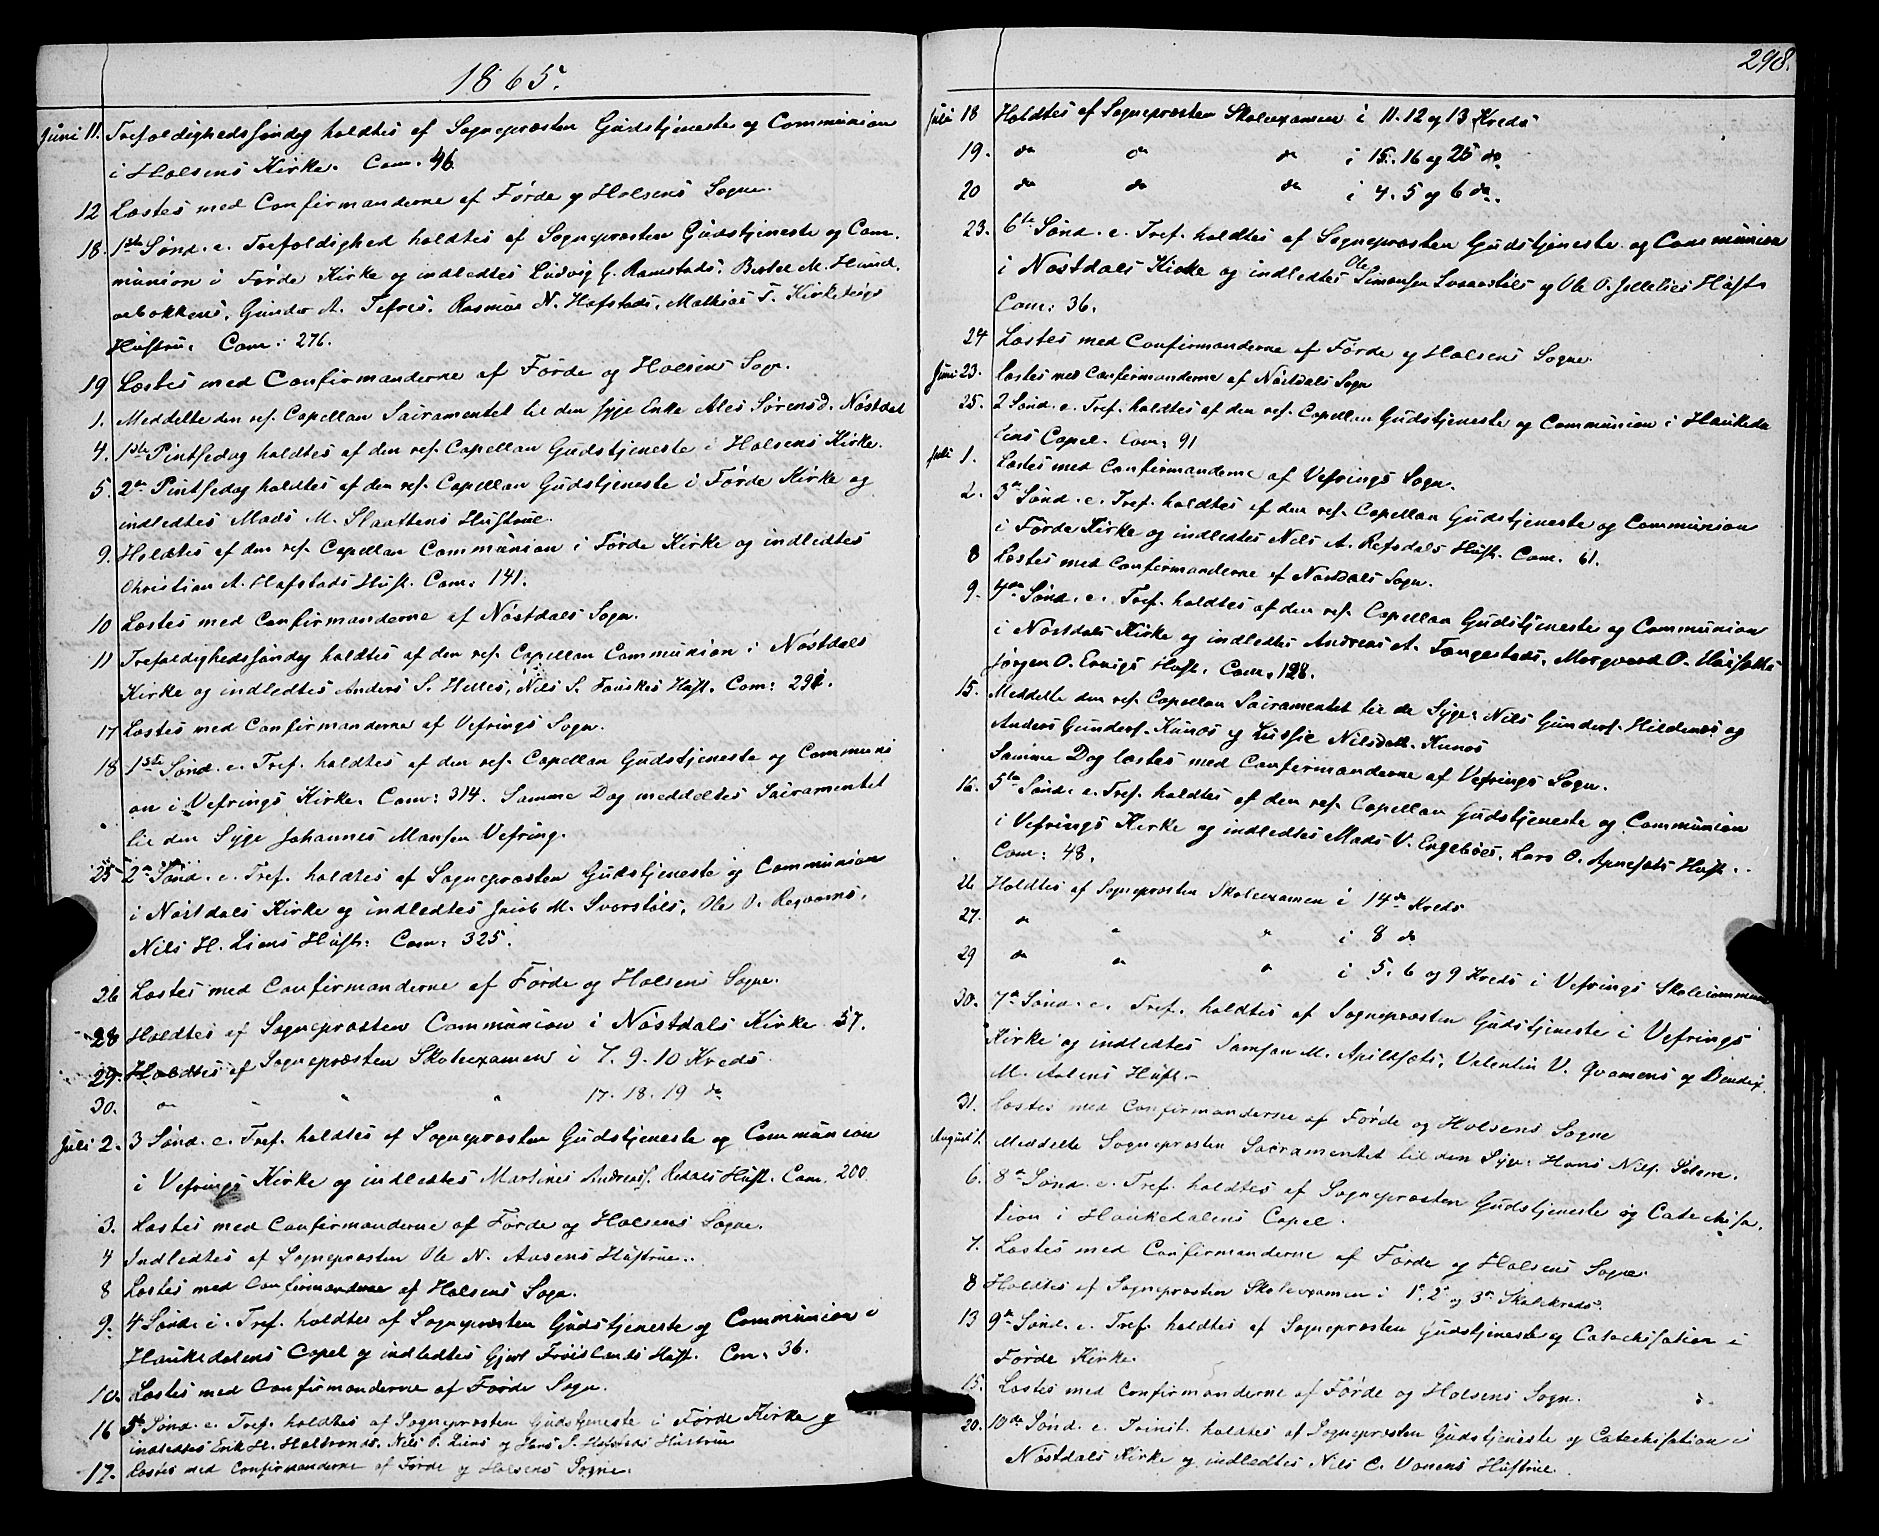 1865.
Juni 11. Trefoldighedssöndag holdtes af Sognepræsten Gudstjeneste og Communion
i Holsens Kirke. Com. 46
12 Læstes med Confirmanderne af Förde og Holsens Sogne.
18. 1ste Sönd. e. Trefoldighed holdtes af Sognepræsten Gudstjeneste og Com-
munion i Förde Kirke og indledtes Ludvig G. Ramstads, Bertel M. Hund-
Gunder A. Tefres, Rasmus N. Hafstads, Mathias T. Kirketeigs
Hustru. Com: 276.
19 Læstes med Confirmanderne af Förde og Holsens Sogn.
1. Meddelte den res. Capellan Sacramentet til den syge Enke Ales Sörensd. Nöstdal
4. 1ste Pintsedag holdtes af den res. Capellan Gudstjeneste i Holsens Kirke.
5. 2en Pintsedag holdtes af den res. Capellan Gudstjeneste i Förde Kirke og
indledtes Mads M. Slaattens Hustrue.
9. Holdtes af den res. Capellan Communion i Förde Kirke og indledtes
Christian A. Hafstads Hust. Com: 141.
10 Læstes med Confirmanderne af Nöstdals Sogn.
11 Trefoldighedssöndag holdtes af den res. Capellan Communion i Nöstdals
Kirke og indledtes Anders S. Helles, Nils S. Fauskes Hust. Com: 291.
17 Læstes med Confirmanderne af Vefrings Sogn.
18 1ste Sönd. e. Tref. holdtes af den res. Capellan Gudstjeneste og Communi
on i Vefrings Kirke. Com: 314. Samme Dag meddeltes Sacramentet
til den Syge Johannes Monsen Vefring.
25 2en Sönd. e. Tref. holdtes af Sognepræsten Gudstjeneste og Communion
i Nöstdals Kirke og indledtes Jacob M. Svorstöls, Ole O.
Nils H. Liens Hust: Com: 325.
26 Læstes med Confirmanderne af Förde og Holsens Sogne.
28 Holdtes af Sognepræsten Communion i Nöstdals Kirke 57.
29. Holdtes af Sognepræsten Skoleexamen i 7. 9. 10 Kreds
30. " " " " 17. 18. 19 do
Juli 2. 3 Sönd. e. Tref. holdtes af Sognepræsten Gudstjeneste og Communion
i Vefrings Kirke og indledtes Martines Andreass. Redals Hust. Com. 200
3. Læstes med Confirmanderne af Förde og Holsens Sogne.
4 Indledtes af Sognepræsten Ole N. Aasens Hustrue..
8 Læstes med Confirmanderne af Holsens Sogn.
9. 4 Sönd. e. Tref. holdtes af Sognepræsten Gudstjeneste og Communion i
Haukedalens Capel og indledtes Gjert Fröislands Hust. Com: 36.
10. Læstes med Confirmanderne af Förde Sogn.
16 5te Sönd. e. Tref. holdtes af Sognepræsten Gudstjeneste i Förde Kirke og
indledtes Erik H. Halbrends, Nils P. Liens og Hans S. Hafstads Hustrue
17. Læstes med Confirmanderne af Förde og Holsens Sogne.
298.
Juli 18 Holdtes af Sognepræsten Skoleexamen i 11. 12 og 13 Kreds
19. do do do i 15. 16 og 25 do
20 do do do i 4. 5 og 6 do.
23. 6te Sönd. e. Tref. holdtes af Sognepræsten Gudstjeneste og Communion
i Nöstdals Kirke og indledtes Ole Simonsen og Ole O. Hust.
Com: 36.
24 Læstes med Confirmanderne af Förde og Holsens Sogne.
Juni 23. Læstes med Confirmanderne af Nöstdals Sogn
25. 2 Sönd. e. Tref. holdtes af den res. Capellan Gudstjeneste og Communion i Haukeda
lens Capel. Com: 91
Juli 1. Læstes med Confirmanderne af Vefrings Sogn.
2. 3die Sönd. e. Tref. holdtes af den res. Capellan Gudstjeneste og Communion
i Förde Kirke og indledtes Nils A. Refsdals Hust. Com. 61.
8 Læstes med Confirmanderne af Nöstdals Sogn.
9. 4de Sönd. e. Tref. holdtes af den res. Capellan Gudstjeneste og Communion
i Nöstdals Kirke og indledtes Andreas A. Tangestads, O.
Jörgen O. Hust. Com. 128.
15. Meddelte den res. Capellan Sacramentet til de Syge: Nils Gunders. Hildenes og
Anders Gunders. Kunes og Lussie Nilsdatt. Kunes
Samme Dag læstes med Confirmanderne af Vefrings Sogn.
16. 5te Sönd. e. Tref. holdtes af den res. Capellan Gudstjeneste og Communion
i Vefrings Kirke og indledtes Mads V. Engeböes, Lars O. Hust..
Com: 48.
26 Holdtes af Sognepræsten Skoleexamen i 14de Kreds
27. do " " i 8 do
29 do do do i 5. 6 og 9 Kreds i Vefrings Skolecommune
30. 7de Sönd. e. Tref. holdtes af Sognepræsten Gudstjeneste i Vefrings
Kirke og indledtes Samson M. Apildsæts, Valentin V. Qvamens og Bendix
M. Aalens Hust.-
31. Læstes med Confirmanderne af Förde og Holsens Sogne
August 1. Meddelte Sognepræsten Sacramentet til den Syge: Hans Nils.
6. 8de Sönd. e. Tref. holdtes af Sognepræsten Gudstjeneste og Catechisa-
tion i Haukedalens Capel.
7. Læstes med Confirmanderne af Förde og Holsens Sogne.
8 Holdtes af Sognepræsten Skoleexamen i 1e, 2e og 3e Skolekreds.
13 9de Sönd. e. Tref. holdtes af Sognepræsten Gudstjeneste og Catechisation i
Förde Kirke.
15. Læstes med Confirmanderne af Förde og Holsens Sogn.
20. 10de Sönd. e. Trinit. holdtes af Sognepræsten Gudstjeneste og Catechisation i
Nöstdals Kirke og indledtes Nils C. Vonens Hustrue.